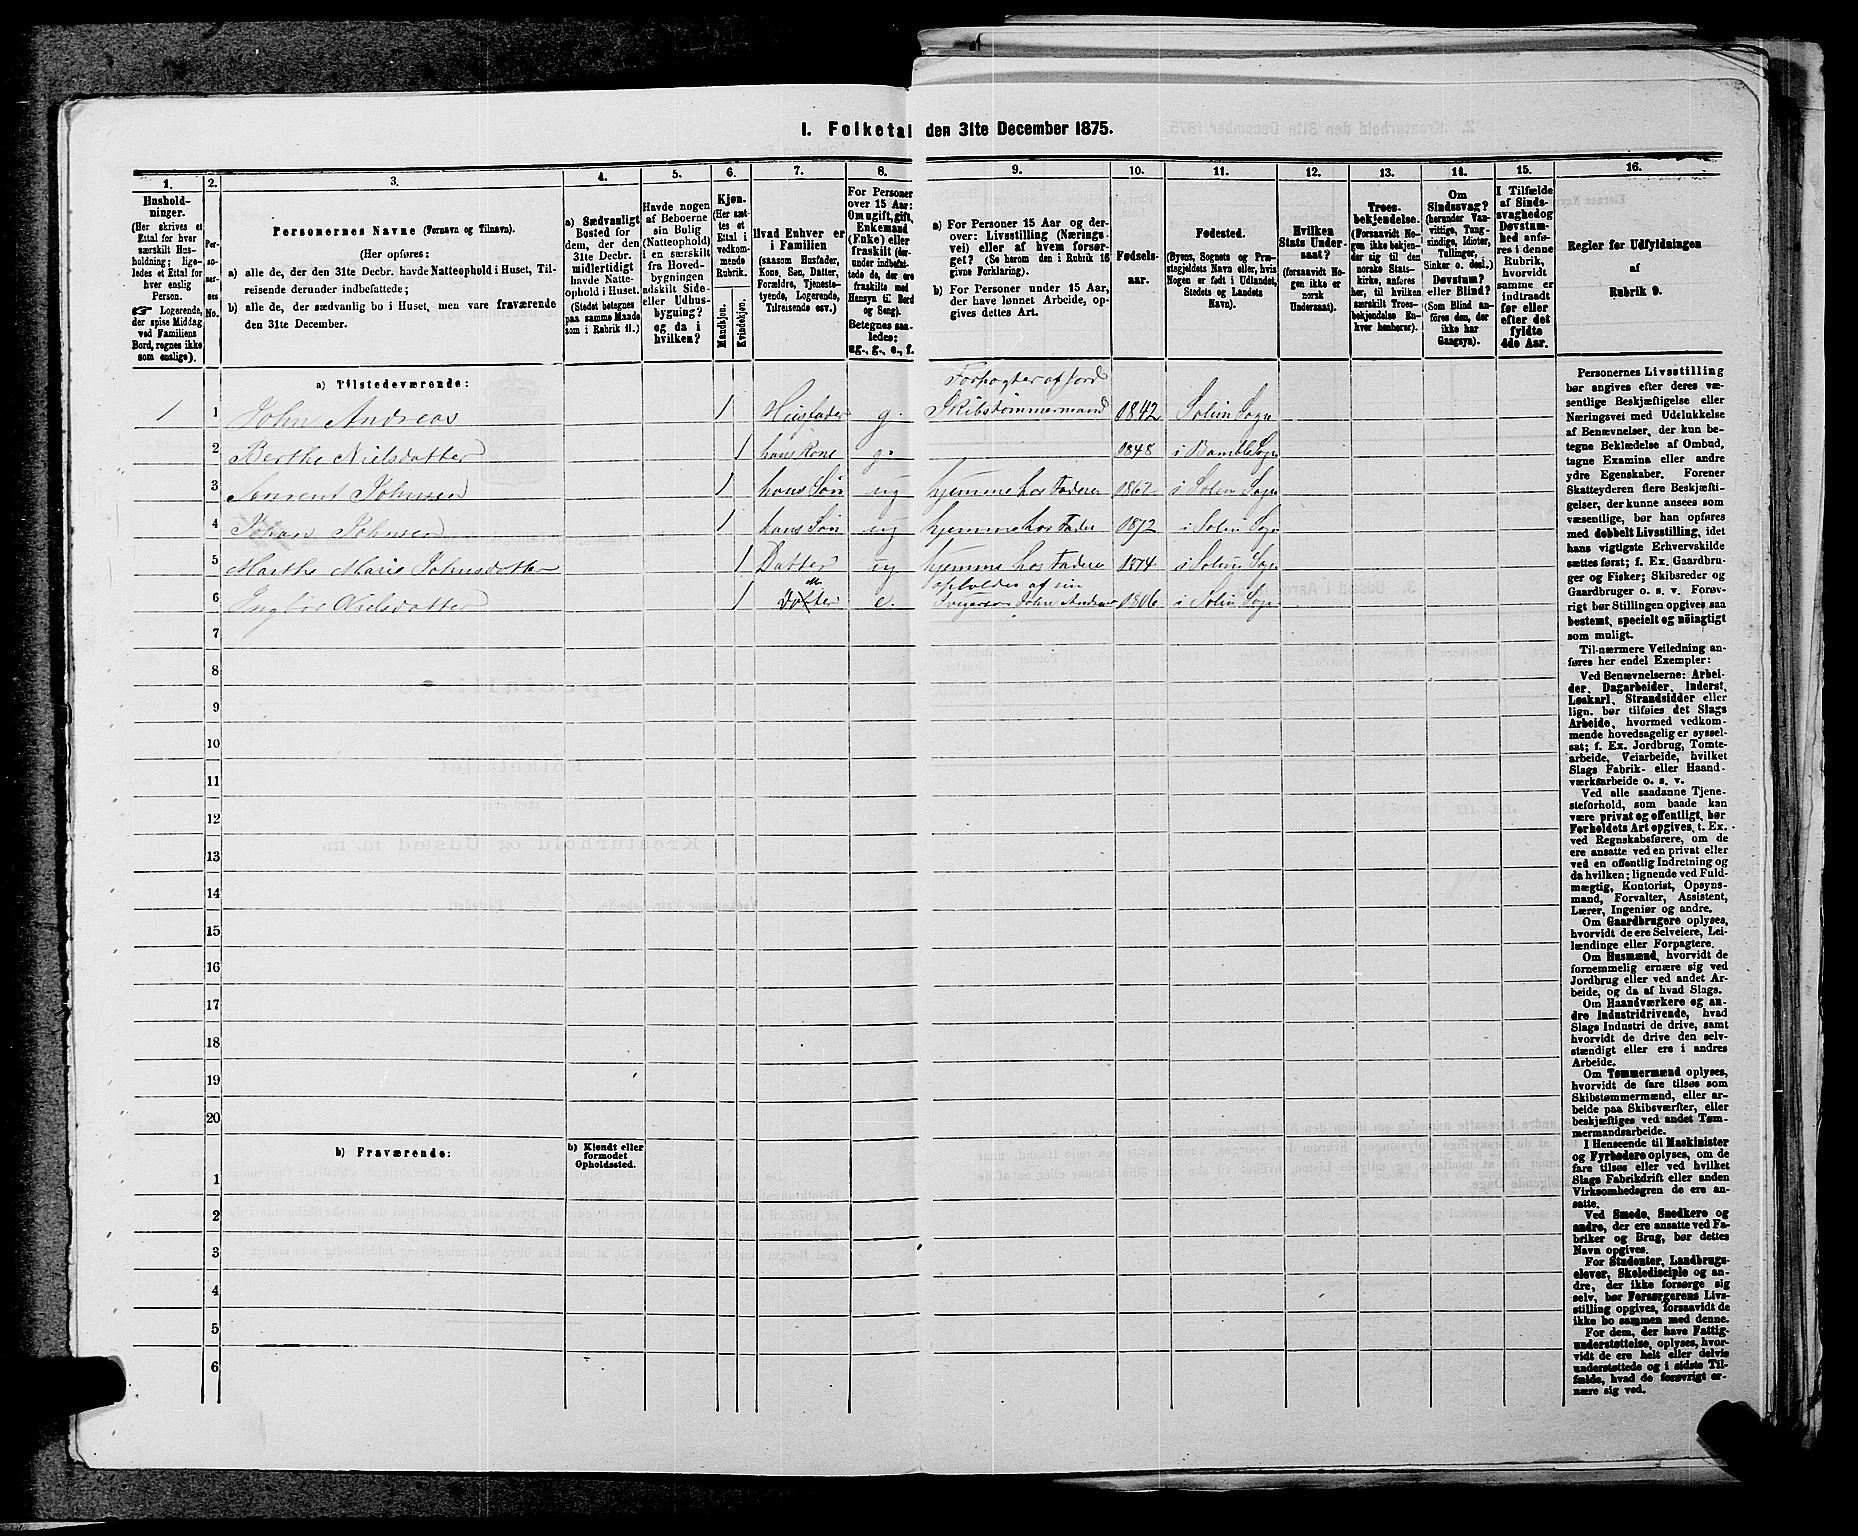 1. Folketal den 31te December 1875.
1. 2. 3. 4. 5. 6. 7. 8. 9. 10. 11. 12. 13. 14. 15. 16.
Hushold-
ninger.
(Her skrives et
Ettal for hver
særskilt Hus-
holdning; lige-
ledes et Ettal for
hver enslig
Person.
☞ Logerende,
der spise Middag
ved Familiens
Bord, regnes ikke
som enslige).
Per-
soner-
nes
No.
Personernes Navne (Fornavn og Tilnavn).
(Her opføres:
a) alle de, der den 31te Decbr. havde Natteophold i Huset, Til-
reisende derunder indbefattede;
b) alle de, der sædvanlig bo i Huset, men vare fraværende
den 31te December.
a) Sædvanligt
Bosted for
dem, der den
31te Decbr.
midlertidigt
havde Natte-
ophold i Huset.
(Stedet betegnes
paa samme Maade
som i Rubrik 11.)
Havde nogen
af Beboerne
sin Bolig
(Natteophold)
i en særskilt
fra Hoved-
bygningen
adskilt Side-
eller Udhus-
bygning?
og da i
hvilken?
Kjøn.
(Her sæt-
tes et
Ettal i
vedkom-
mende
Rubrik.
Mandkjøn.
Kvindekjøn.
Hvad Enhver er
i Familien
(saasom Husfader,
Kone, Søn, Datter,
Forældre, Tjeneste-
tyende, Logerende,
Tilreisende osv.)
For Personer
over 15 Aar:
Om ugift, gift,
Enkemand
(Enke) eller
fraskilt (der-
under indbefat-
tede de, der ere
fraskilte med
Hensyn til Bord
og Seng).
Betegnes saa-
ledes:
ug., g., e., f.
a) For Personer 15 Aar og der-
over: Livsstilling (Nærings
vei) eller af hvem forsør-
get? (Se herom den i Rubrik 16
givne Forklaring).
b) For Personer under 15 Aar,
der have lønnet Arbeide, op-
gives dettes Art.
Fødsels-
aar.
Fødested.
(Byens, Sognets og Præ-
stegjeldets Navn eller, hvis
Nogen er født i Udlandet,
Stedets og Landets
Navn).
Hvilken
Stats Under-
saat?
(forsaavidt No-
gen ikke er
norsk
Undersaat).
Troes-
bekjendelse.
(Forsaavidt No-
gen ikke bekjen-
der sig til den
norske Stats-
kirke, anføres
her, til hvilken
særskilt Troes-
bekjendelse En-
hver henhører).
Om
Sindssvag?
(herunder Van-
vittige, Tung-
sindige, Idioter,
Tullinger,
Sinker o. desl.)
Døvstum?
eller Blind?
(Som Blind an-
føres den, der
ikke har
Gangsyn).
I Tilfælde
af Sinds-
svaghed og
Døvstum-
hed anfø-
res i denne
Rubrik,
hvorvidt
samme er
indtraadt
før eller
efter det
fyldte
4de Aar.
Regler for Udfyldningen
af
Rubrik 9.
a) Tilstedeværende:
Forpagter af Jord
1 1 John Andreas 1 Husfader g. Skibstømmermand 1842 Solum Sogn
2 Berthe Nielsdatter 1 hans Kone g. 1848 i Bamble Sogn
3 Johnsen 1 hans Søn ug hjemme hos Faderen 1862 i Solum Sogn
4 Johan Johnsen 1 hans Søn ug hjemme hos Fader 1872 i Solum Sogn
5 Marthe Marie Johnsdatter 1 Datter ug hjemme hos Faderen 1874 i Solum Sogn
opholdes af sin
6 Ingbor Nielsdatter 1 e. Svigersøn John Andreas 1806 i Solum Sogn
7
8
9
10
11
12
13
14
15
16
17
18
19
20
b) Fraværende:
b) Kjendt eller
formodet
Opholdssted.
1
2
3
4
5
6
Personernes Livsstilling
bør angives efter deres væ-
sentlige Beskjæftigelse eller
Næringsvei med Udelukkelse
af Benævnelser, der kun be-
tegne Beklædelse af Ombud,
tagne Examina eller andre
ydre Egenskaber. Forener
Skatteyderen flere Beskjæfti-
gelser, der kunne ansees som
væsentlige, bør han opføres
med dobbelt Livsstilling, idet
hans vigtigste Erhvervskilde
sættes først; f. Ex. Gaardbru-
ger og Fisker; Skibsreder og
Gaardbruger o. s. v. Forøv-
rigt bør Stillingen opgives saa
bestemt, specielt og nöiagtigt
som muligt.
Til nærmere Veiledning an-
føres her endel Exempler:
Ved Benævnelserne: Arbei-
der, Dagarbeider, Inderst,
Løskarl, Strandsidder eller
lign. bør tilføies det Slags
Arbeide, hvormed vedkom-
mende hovedsagelig er syssel-
sat; f. Ex. Jordbrug, Tomte-
arbeide, Veiarbeide, hvilket
Slags Fabrik- eller Haand-
værksarbeide o. s. v.
Ved alle saadanne Tjene-
steforhold, som baade kan
være privat og offentligt, bør
Forholdets Art opgives, t. Ex.
ved Regnskabsførere, om de
ere ansatte ved en privat eller
ved en offentlig Indretning og
da hvilken; lignende ved Fuld-
mægtig, Kontorist, Opsyns-
mand, Forvalter, Assistent,
Lærer, Ingeniør og andre.
Om Gaardbrugere oplyses,
hvorvidt de ere Selveiere, Lei-
lændinge eller Forpagtere.
Om Husmænd, hvorvidt de
fornemmelig ernære sig ved
Jordbrug eller ved andet Ar-
beide, og da af hvad Slags.
Om Haandværkere og an-
dre Industridrivende, hvad
Slags Industri de drive, samt
hvorvidt de drive den selv-
stændigt eller ere i andres
Arbeide.
Om Tømmermænd oplyses,
hvorvidt de fare tilsøs som
Skibstømmermænd, eller ar-
beide paa Skibsværfter, eller
beskjæftiges ved andet Tøm-
mermandsarbeide.
I Henseende til Maskinister
og Fyrbødere oplyses, om de
fare tilsøs eller ved hvilket
Slags Fabrikdrift eller anden
Virksomhedsgren de ere an-
satte.
Ved Smede, Snedkere og
andre, der ere ansatte ved Fa-
briker og Brug, bør dettes
Navn opgives.
For Studenter, Landbrugs-
elever, Skoledisciple og an-
dre, der ikke forsørge sig
selv, bør Forsørgerens Livs-
stilling opgives, forsaavidt de
ikke bo sammen med denne.
For dem, der have Fattig-
understøttelse, oplyses, hvor-
vidt de ere helt eller delvis
understøttede og i sidste Til-
fælde, hvad de forøvrigt er-
nære sig ved.